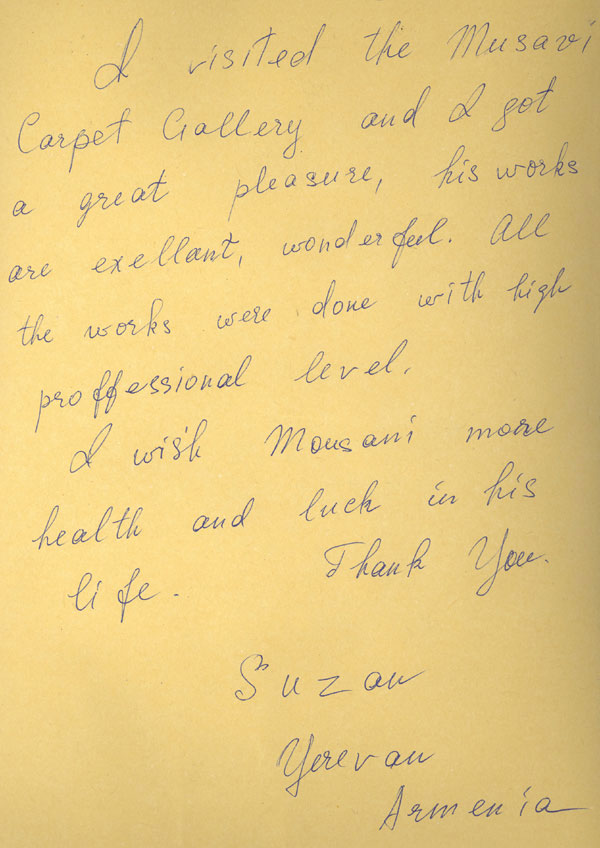 I visited the Musavi
Carpet Gallery and I got
a great pleasure, his works
are exellant, wonderful. All
the works were done with high
proffessional level.
I wish Mousavi more
health and luck in his
life. Thank You.
Suzan
Yerevan
Armenia